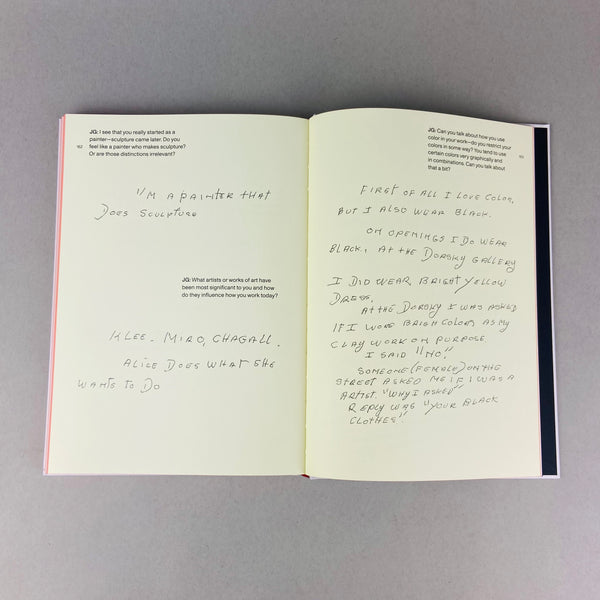 JG: I see that you really started as a
painter—sculpture came later. Do you
feel like a painter who makes sculpture?
Or are those distinctions irrelevant?
162
"I'M A PAINTER THAT
DOES SCULPTURE
JG: What artists or works of art have
been most significant to you and how
do they influence how you work today?
KLEE. MIRO, CHAGALL.
ALICE DOES WHAT SHE
WANTS TO DO
JG: Can you talk about how you use
color in your work—do you restrict your
colors in some way? You tend to use
certain colors very graphically and
in combinations. Can you talk about
that a bit?
163
FIRST OF ALL I LOVE COLOR,
BUT I ALSO WEAR BLACK.
ON OPENINGS I DO WEAR
BLACK, AT THE DORSKY GALLERY
I DID WEAR BRIGHT YELLOW
DRESS,
AT THE DORSKY I WAS ASKED
IF I WORE BRIGH COLORS AS MY
CLAY WORK ON PURPOSE
I SAID "NO."
SOMEONE (FEMALE) ON THE
STREET ASKED ME IF I WAS A
ARTIST. "WHY I ASKED"
REPLY WAS "YOUR BLACK
CLOTHES".